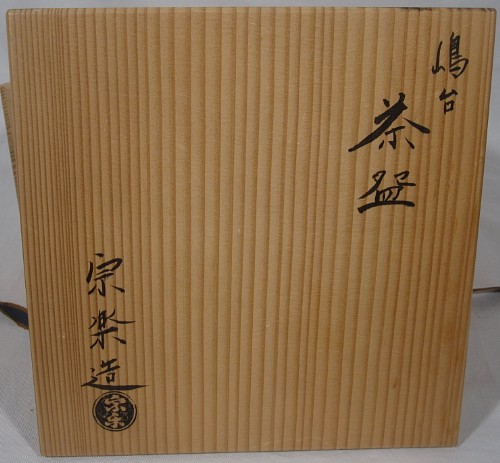 嶋台
茶盌
宗楽造
宗楽